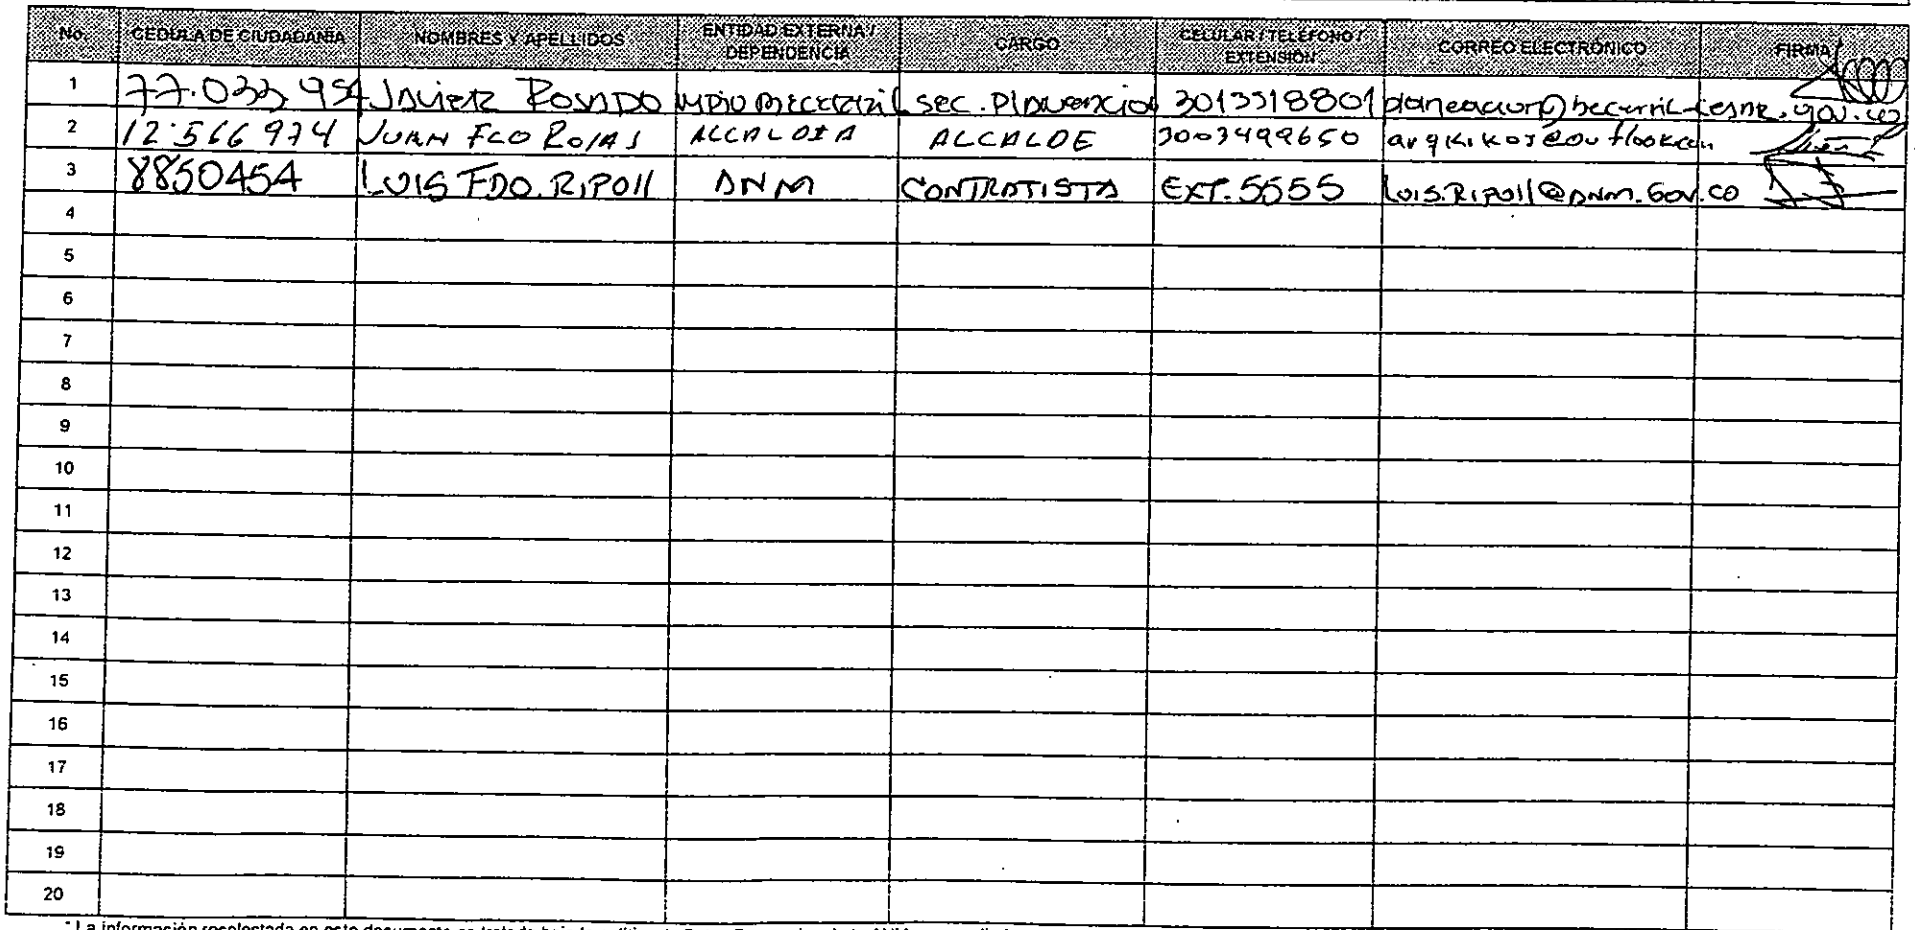 No. CÉDULA DE CIUDADANÍA NOMBRES Y APELLIDOS ENTIDAD EXTERNA / DEPENDENCIA CARGO CELULAR / TELÉFONO / EXTENSIÓN CORREO ELECTRÓNICO FIRMA
1 77.033.954 JAVIER ROSADO MPIO BECERRIL sec. Planeacion 3013518801
2 12.566 974 JUAN FCO ROJAS ALCALDIA ALCALDE 3003499650
3 8850454 LUIS FDO. RIPOll ANM CONTRATISTA EXT. 5555 LUIS.RIPOll@ANM.GOV.CO
4
5
6
7
8
9
10
11
12
13
14
15
16
17
18
19
20
* La información recolectada en este documento es tratada